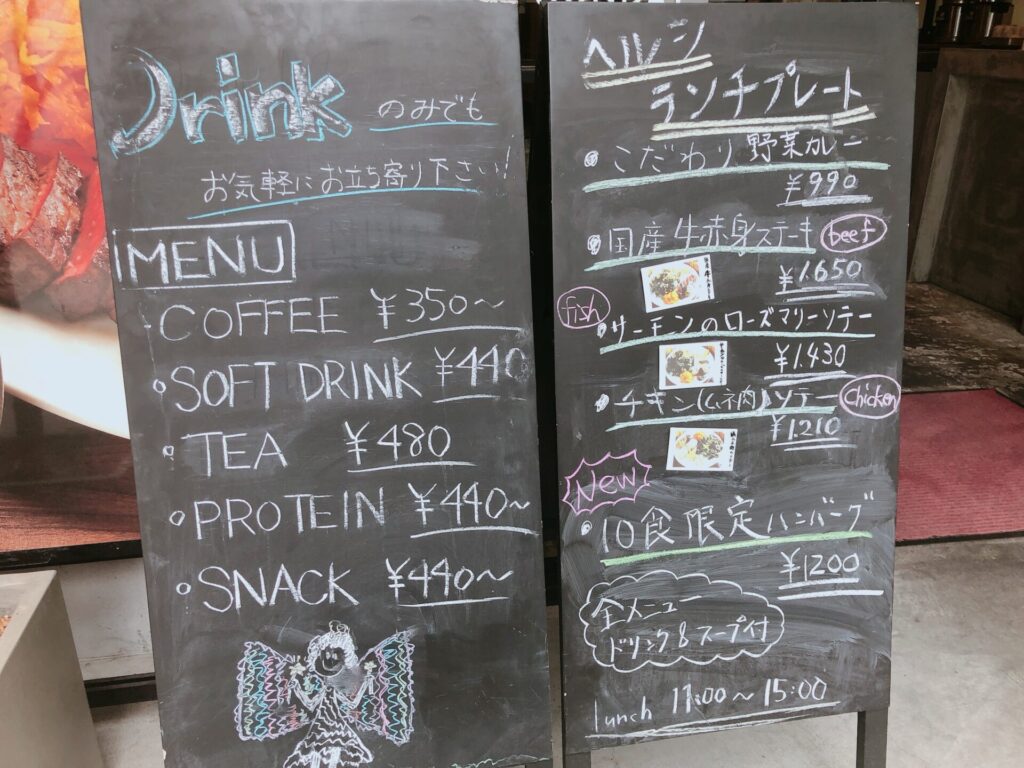 Drink のみでも
お気軽にお立ち寄り下さい!
MENU
COFFEE ¥350~
SOFT DRINK ¥440
TEA ¥480
PROTEIN ¥440~
SNACK ¥440~
ヘルシー
ランチプレート
こだわり野菜カレー
¥990
国産牛赤身ステーキ beef
¥1.650
fish
サーモンのローズマリーソテー
¥1.430
チキン(ムネ肉)ソテー chicken
¥1.210
New
10食限定ハンバーグ
¥1200
全メニュー
ドリンク&スープ付
lunch 11:00~15:00